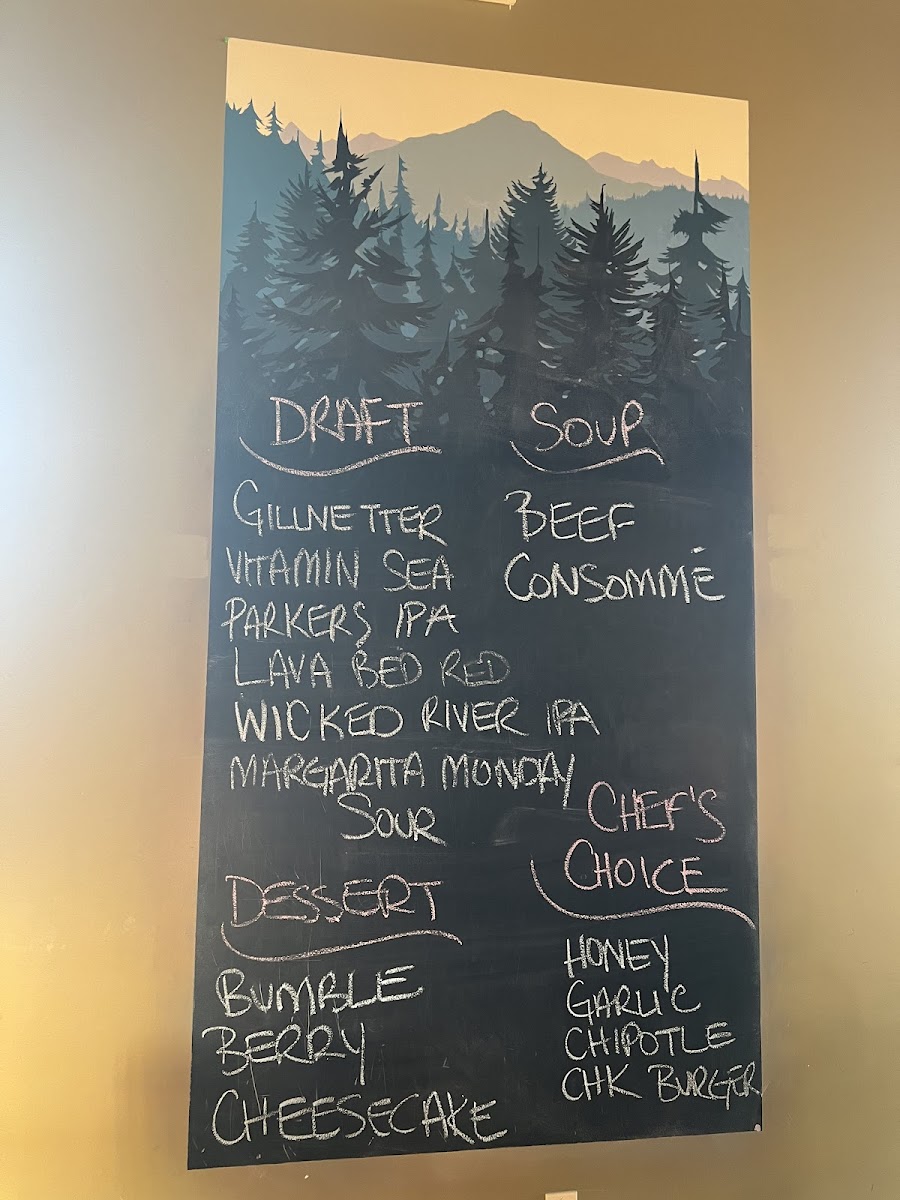 DRAFT
GILLNETTER
VITAMIN SEA
PARKERS IPA
LAVA BED RED
WICKED RIVER IPA
MARGARITA MONDAY
SOUR
SOUP
BEEF
CONSOMMÉ
DESSERT
BUMBLE
BERRY
CHEESECAKE
CHEF'S
CHOICE
HONEY
GARLIC
CHIPOTLE
CHK BURGER